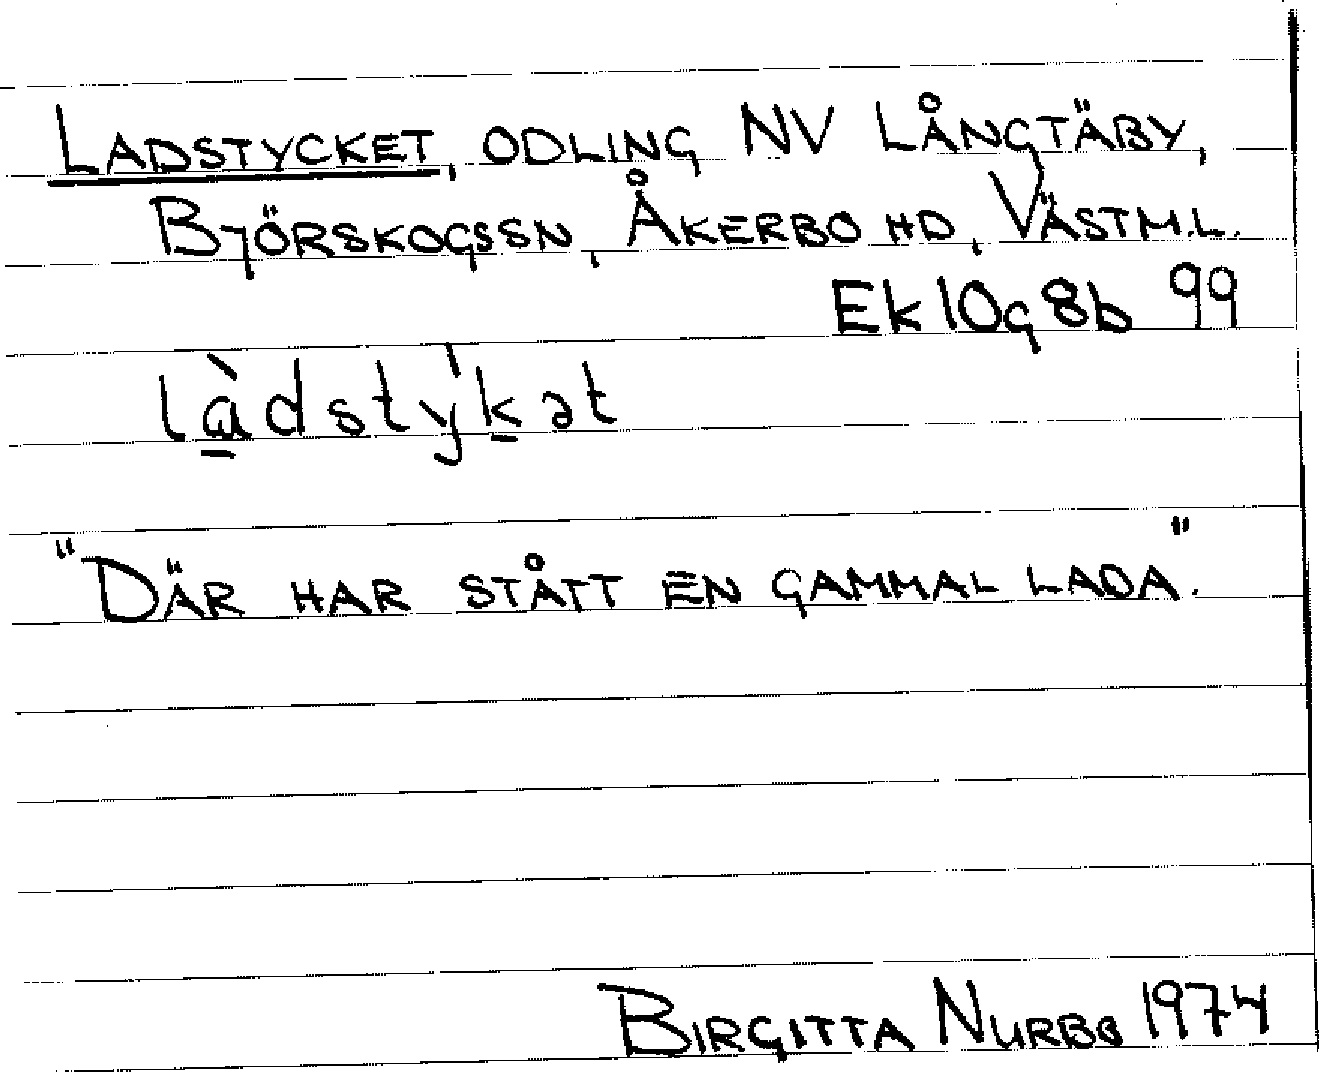 LADSTYCKET, ODLING NV LÅNGTÄBY,
BJÖRSKOGSSN, ÅKERBO HD, VÄSTM.L.
Ek 10g 8b 99
là̱dstýḵət
"DÄR HAR STÅTT EN GAMMAL LADA."
BIRGITTA NURBO 1974